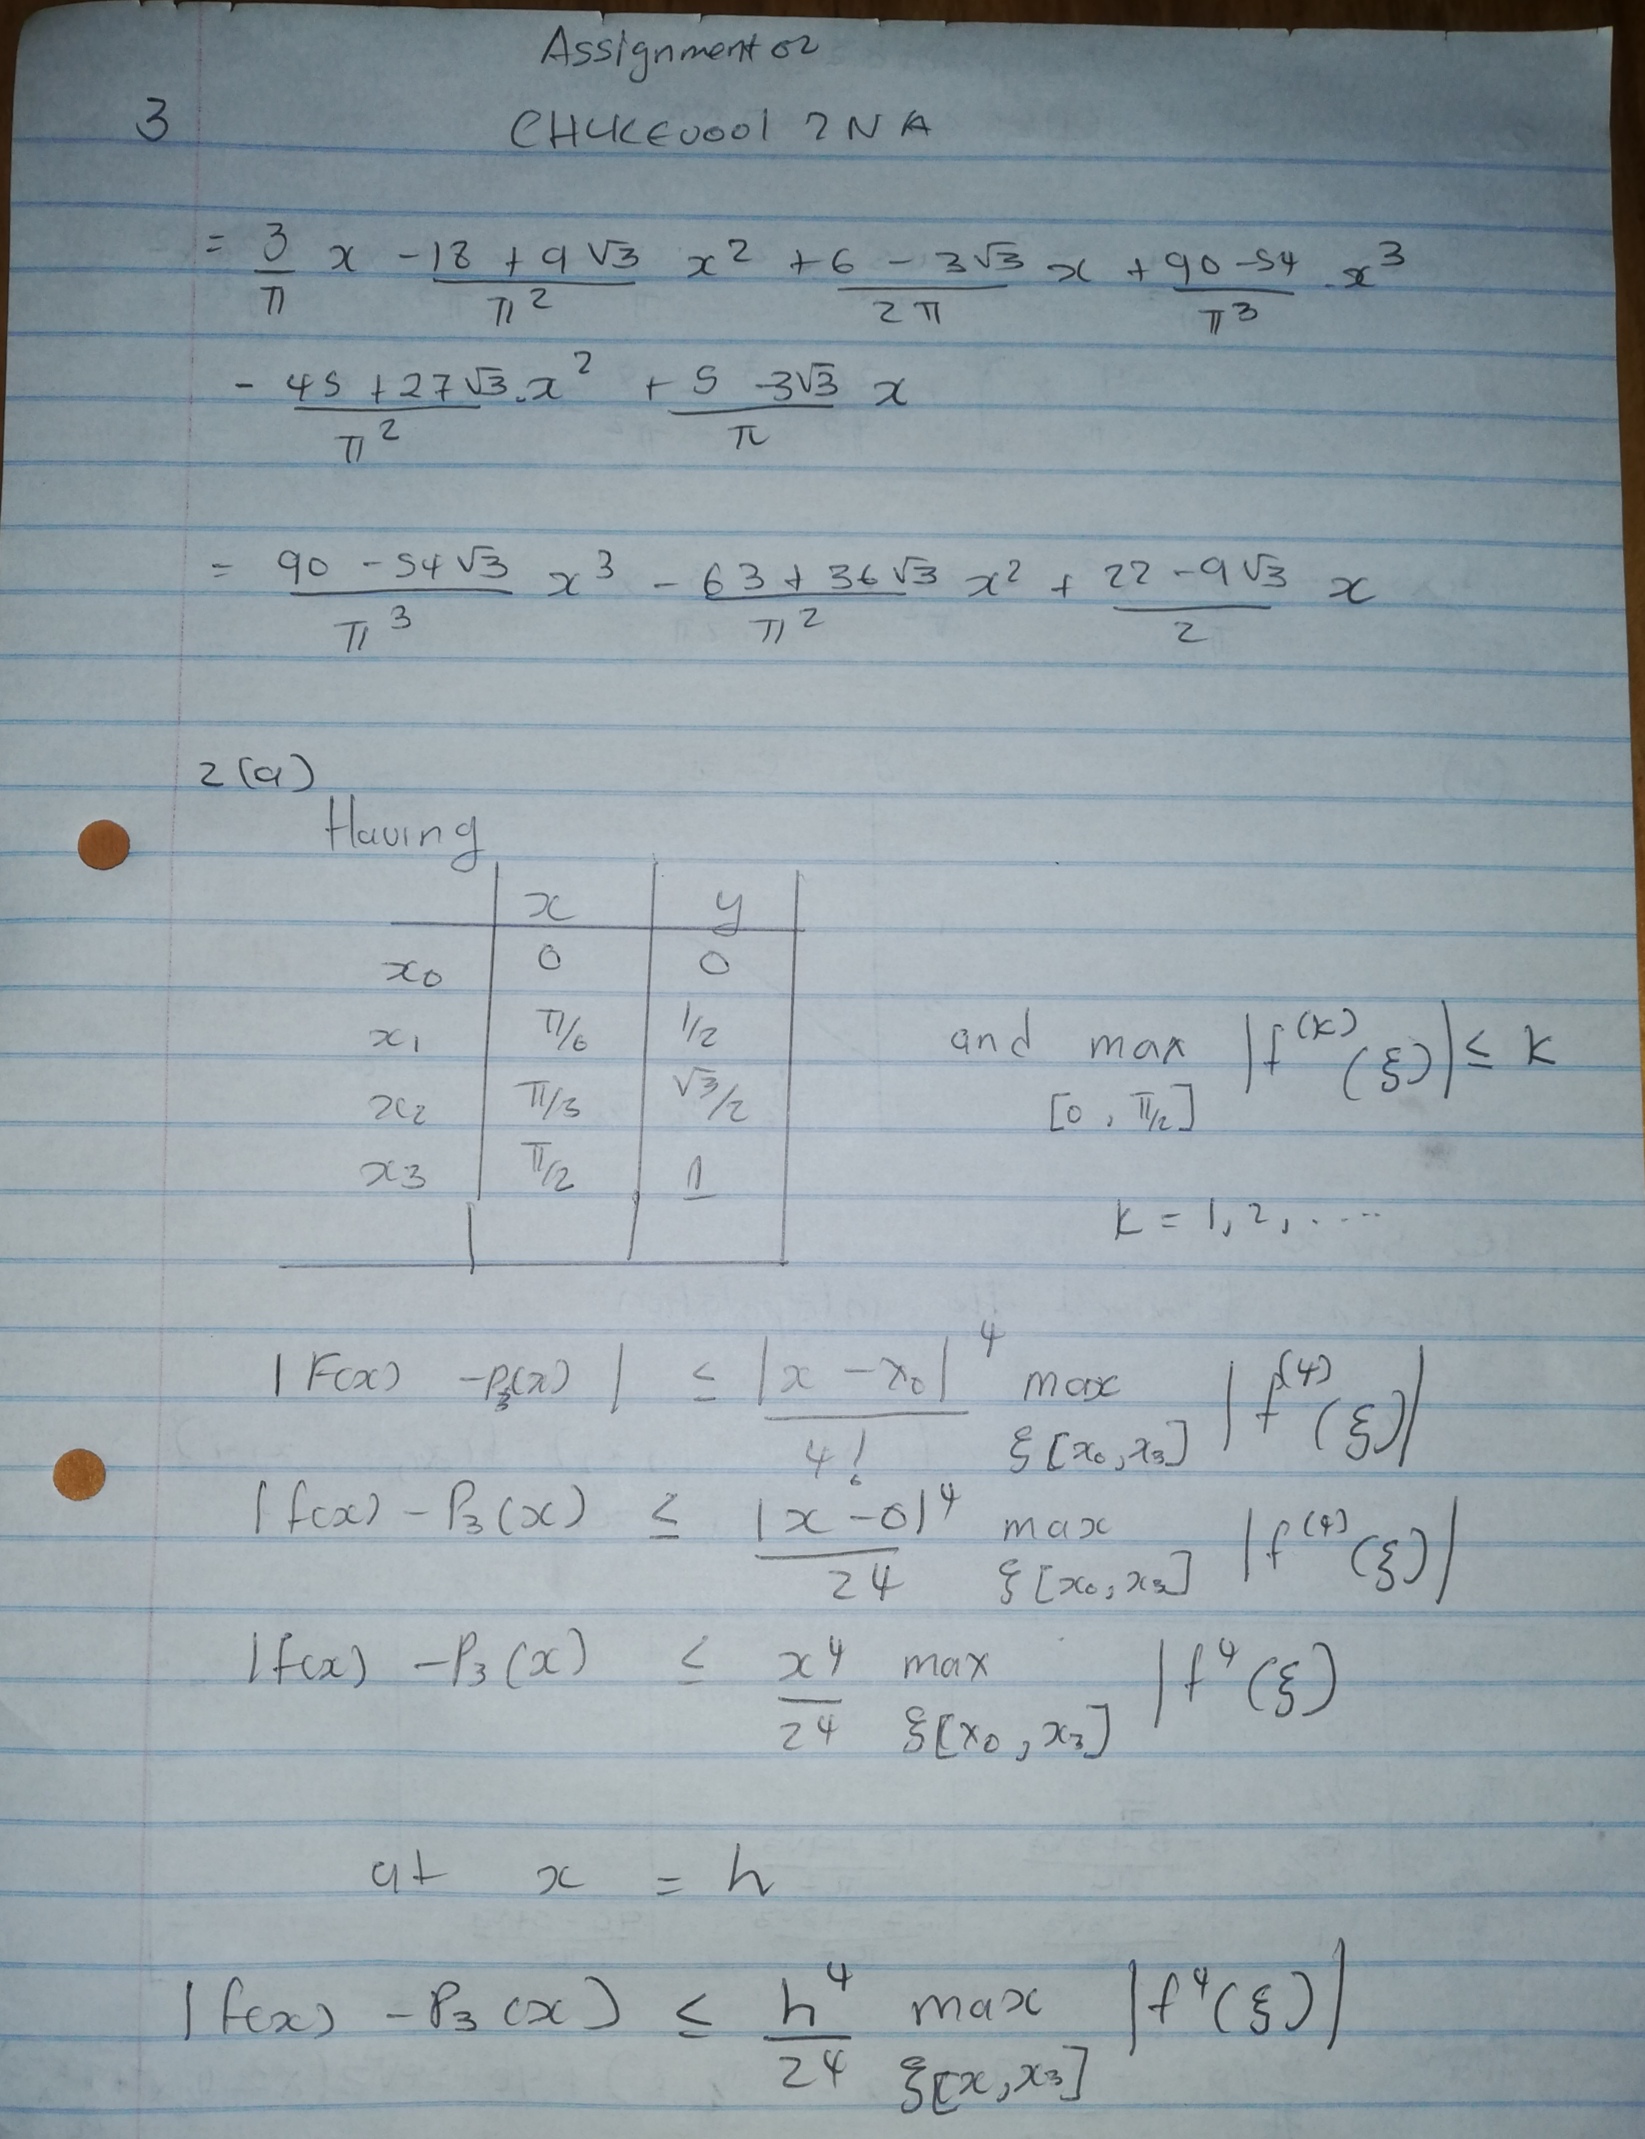 Assignment 02
3 CHUKEU001 2NA
= 3/π x - 18 + 9√3/π² x² + 6 - 3√3/2π x + 90 - 54/π³ . x³
- 45 + 27√3/π² . x² + 5 - 3√3/π x
= 90 - 54√3/π³ x³ - 63 + 36√3/π² x² + 22 - 9√3/2 x
2(a)
Having
x y
x₀ 0 0
x₁ π/6 1/2
x₂ π/3 √3/2
x₃ π/2 1
and max |f⁽ᴷ⁾(ξ)| ≤ K
[0, π/2]
K = 1, 2, ....
|F(x) - P₃(x)| ≤ |x - x₀|⁴/4! max |f⁽⁴⁾(ξ)|
ξ[x₀, x₃]
|f(x) - P₃(x) ≤ |x - 0|⁴/24 max |f⁽⁴⁾(ξ)|
ξ[x₀, x₃]
|f(x) - P₃(x) ≤ x⁴/24 max |f⁴(ξ)
ξ[x₀, x₃]
at x = h
|f(x) - P₃(x) ≤ h⁴/24 max |f⁴(ξ)|
ξ[x, x₃]